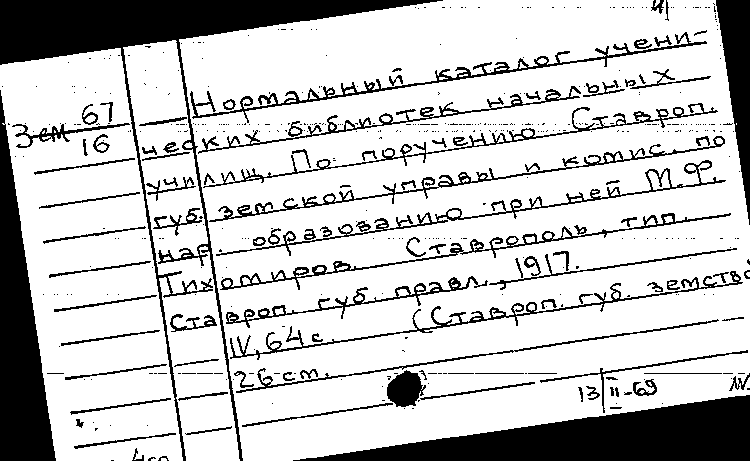 Зем 67
16
Нормальный каталог учени-
ческих библиотек начальных
училищ. По поручению Ставроп.
губ. земской управы и комис. по
нар. образованию при ней М.Ф.
Тихомиров. Ставрополь, тип.
Ставроп. губ. правл., 1917.
IV, 64 с. (Ставроп. губ. земство
26 см.
13/II-69